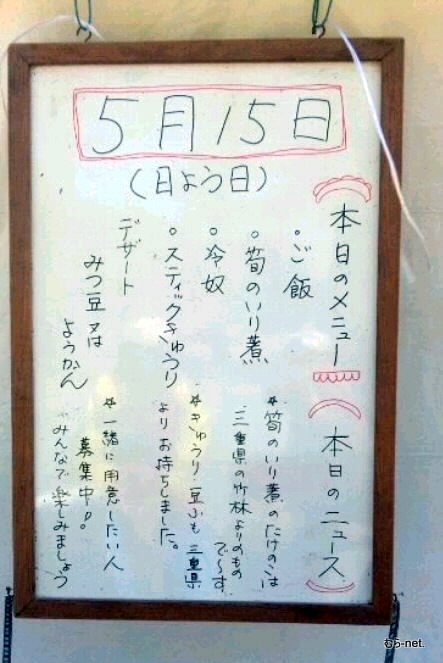 5月15日
(日よう日)
本日のメニュー
。ご飯
。筍のいり煮
。冷奴
。スティックきゅうり
デザート
みつ豆又は
ようかん
本日のニュース
*筍のいり煮のたけのこは
三重県の竹林よりのもの
で〜す
*きゅうり・豆ふも三重県
よりお持ちしました。
*一緒に用意したい人
募集中!。
みんなで楽しみましょう
むら-net.